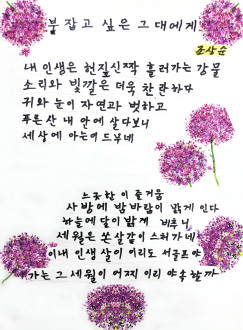 붙잡고 싶은 그대에게
조상순
내 인생은 헌짚신짝 흘러가는 강물
소리와 빛깔은 더욱 찬란하다
귀와 눈이 자연과 벗하고
푸른 산 내 안에 살다보니
세상에 아는이 드무네
느긋한 이 즐거움
사방에 밤바람이 맑게 인다
하늘에 달이 밝게 비추니
세월은 쏜살같이 스쳐가네
이내 인생 살이 이리도 서글프야
가는 그 세월이 어찌 이리 야속할까